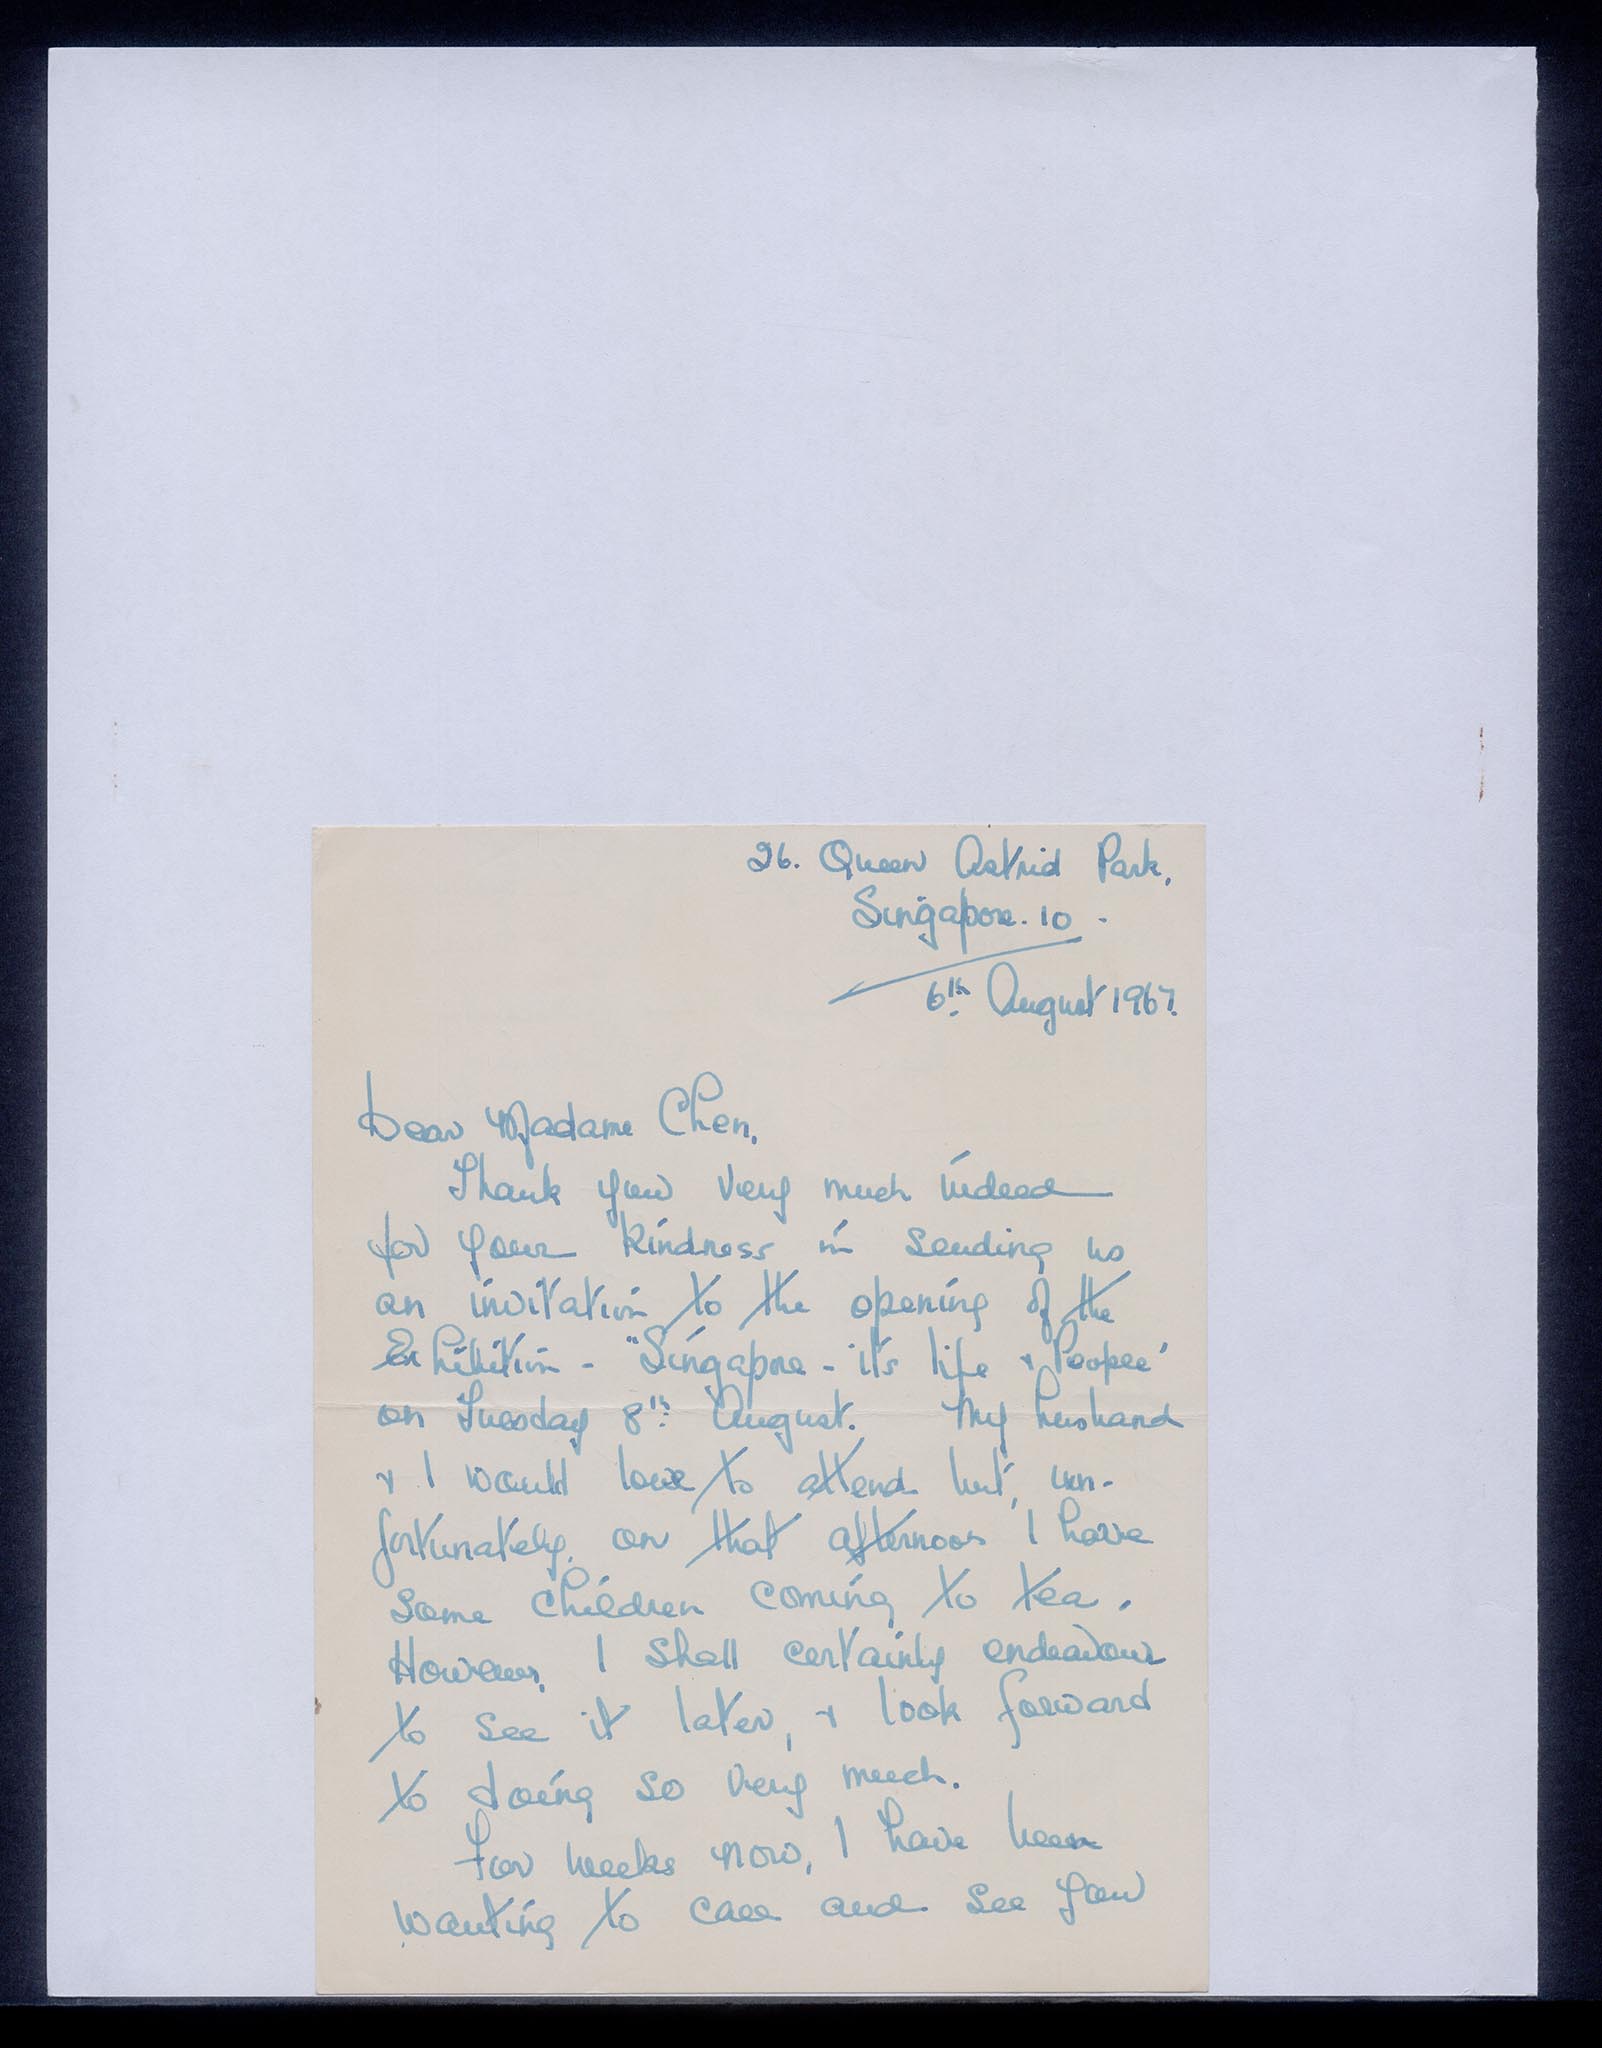 26. Queen Astrid Park,
Singapore. 10.
6th August 1967.
Dear Madame Chen,
Thank you very much indeed
for your kindness in sending us
an invitation to the opening of the
Exhibition - "Singapore - it's life & People"
on Tuesday 8th August. My husband
& I would love to attend but, un-
fortunately, on that afternoon I have
some children coming to tea.
However, I shall certainly endeavour
to see it later, & look forward
to doing so very much.
For weeks now, I have been
wanting to call and see you